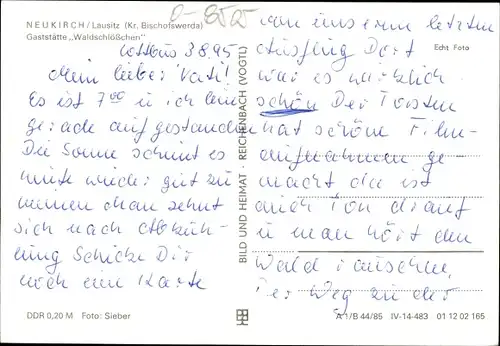 NEUKIRCH / Lausitz (Kr. Bischofswerda)
Gaststätte „Waldschlößchen"
D-8525
Cottbus 3.8.95
Mein lieber Kati!
Es ist 7⁰⁰ u ich bin
gerade aufgestanden
Die Sonne scheint es
heute wieder gut zu
meinen man sehnt
sich nach Abküh-
lung Schicke Dir
noch eine Karte
von unserem letzten
Ausflug Dort
war es wirklich
schön Der Torsten
hat schöne Film-
aufnahmen ge-
macht da ist
auch Ton drauf
u man hört den
Wald rauschen,
Der Weg zu der
Echt Foto
BILD UND HEIMAT · REICHENBACH (VOGTL)
DDR 0,20 M Foto: Sieber
A 1/B 44/85 IV-14-483 01 12 02 165